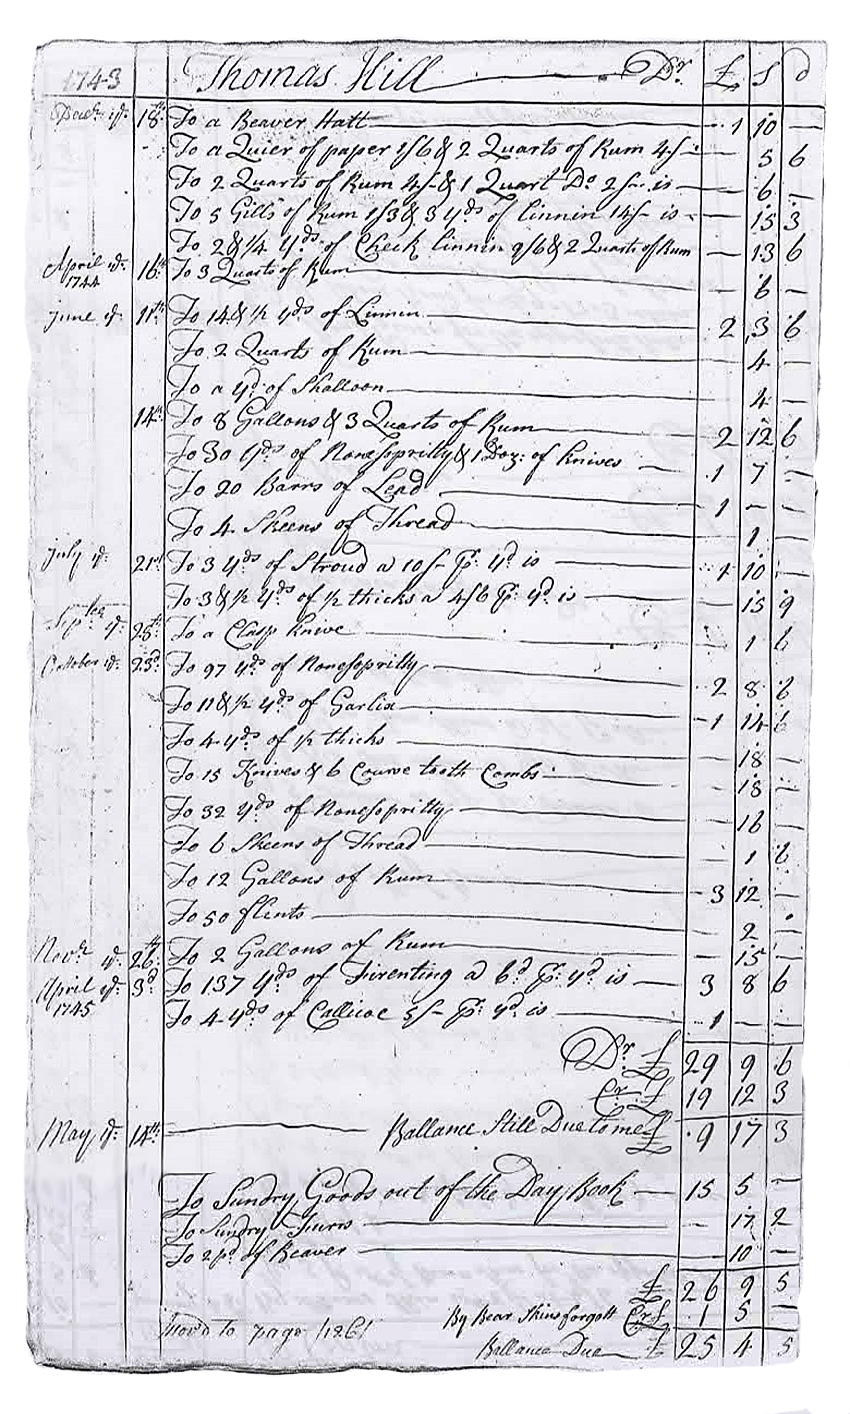 1743 Thomas Hill Dr. £ S d
Decbr ye. 18th To a Beaver Hatt 1 10 —
To a Quier of paper 1/6 & 2 Quarts of Rum 4/- — 5 6
To 2 Quarts of Rum 4/- & 1 Quart Do. 2/- is — 6 —
To 5 Gills of Rum 1/3 & 3 yds of linnin 14/- is — 15 3
To 2 & 1/4 yds of Check linnin 9/6 & 2 Quarts of Rum — 13 6
April ye. 1744 16th To 3 Quarts of Rum — 6 —
June ye. 11th To 14 & 1/2 yds of Linnin 2 3 6
To 2 Quarts of Rum 4 —
To a yd. of Shalloon 4 —
14th To 8 Gallons & 3 Quarts of Rum 2 12 6
To 30 yds of Nonesopritty & 1 Doz: of Knives 1 7 —
To 20 Barrs of Lead 1 — —
To 4 Skeens of Thread 1 —
July ye. 21st To 3 yds of Stroud a 10/- Pr. yd is 1 10 —
To 3 & 1/2 yds of 1/2 thicks a 4/6 Pr. yd. is — 15 9
Septbr ye. 25th To a Clasp Knive — 1 6
October ye. 23d. To 97 yds of Nonesopritty 2 8 6
To 11 & 1/2 yds of Garlix 1 14 6
To 4 yds of 1/2 thicks — 18 —
To 15 Knives & 6 Course tooth Combs — 18 —
To 32 yds of Nonesopritty — 16 —
To 6 Skeens of Thread — 1 6
To 12 Gallons of Rum 3 12 —
To 50 flints — 2
Novbr ye. 26th To 2 Gallons of Rum — 15 —
April ye. 1745 3d To 137 yds of a 6d. Pr. yd is 3 8 6
To 4 yds of Callicoe 5/- Pr. yd. is 1 — —
Dr. £ 29 9 6
Cr. £ 19 12 3
May ye. 14th Ballance Still Due to me £ 9 17 3
To Sundry Goods out of the Day Book 15 5 —
To Sundry Furrs — 17 2
To 2 pd. of Beaver 10 —
£ 26 9 5
By Bear Skins forgott Cr £ 1 5 —
Mov'd to page /126/ Ballance Due £ 25 4 5